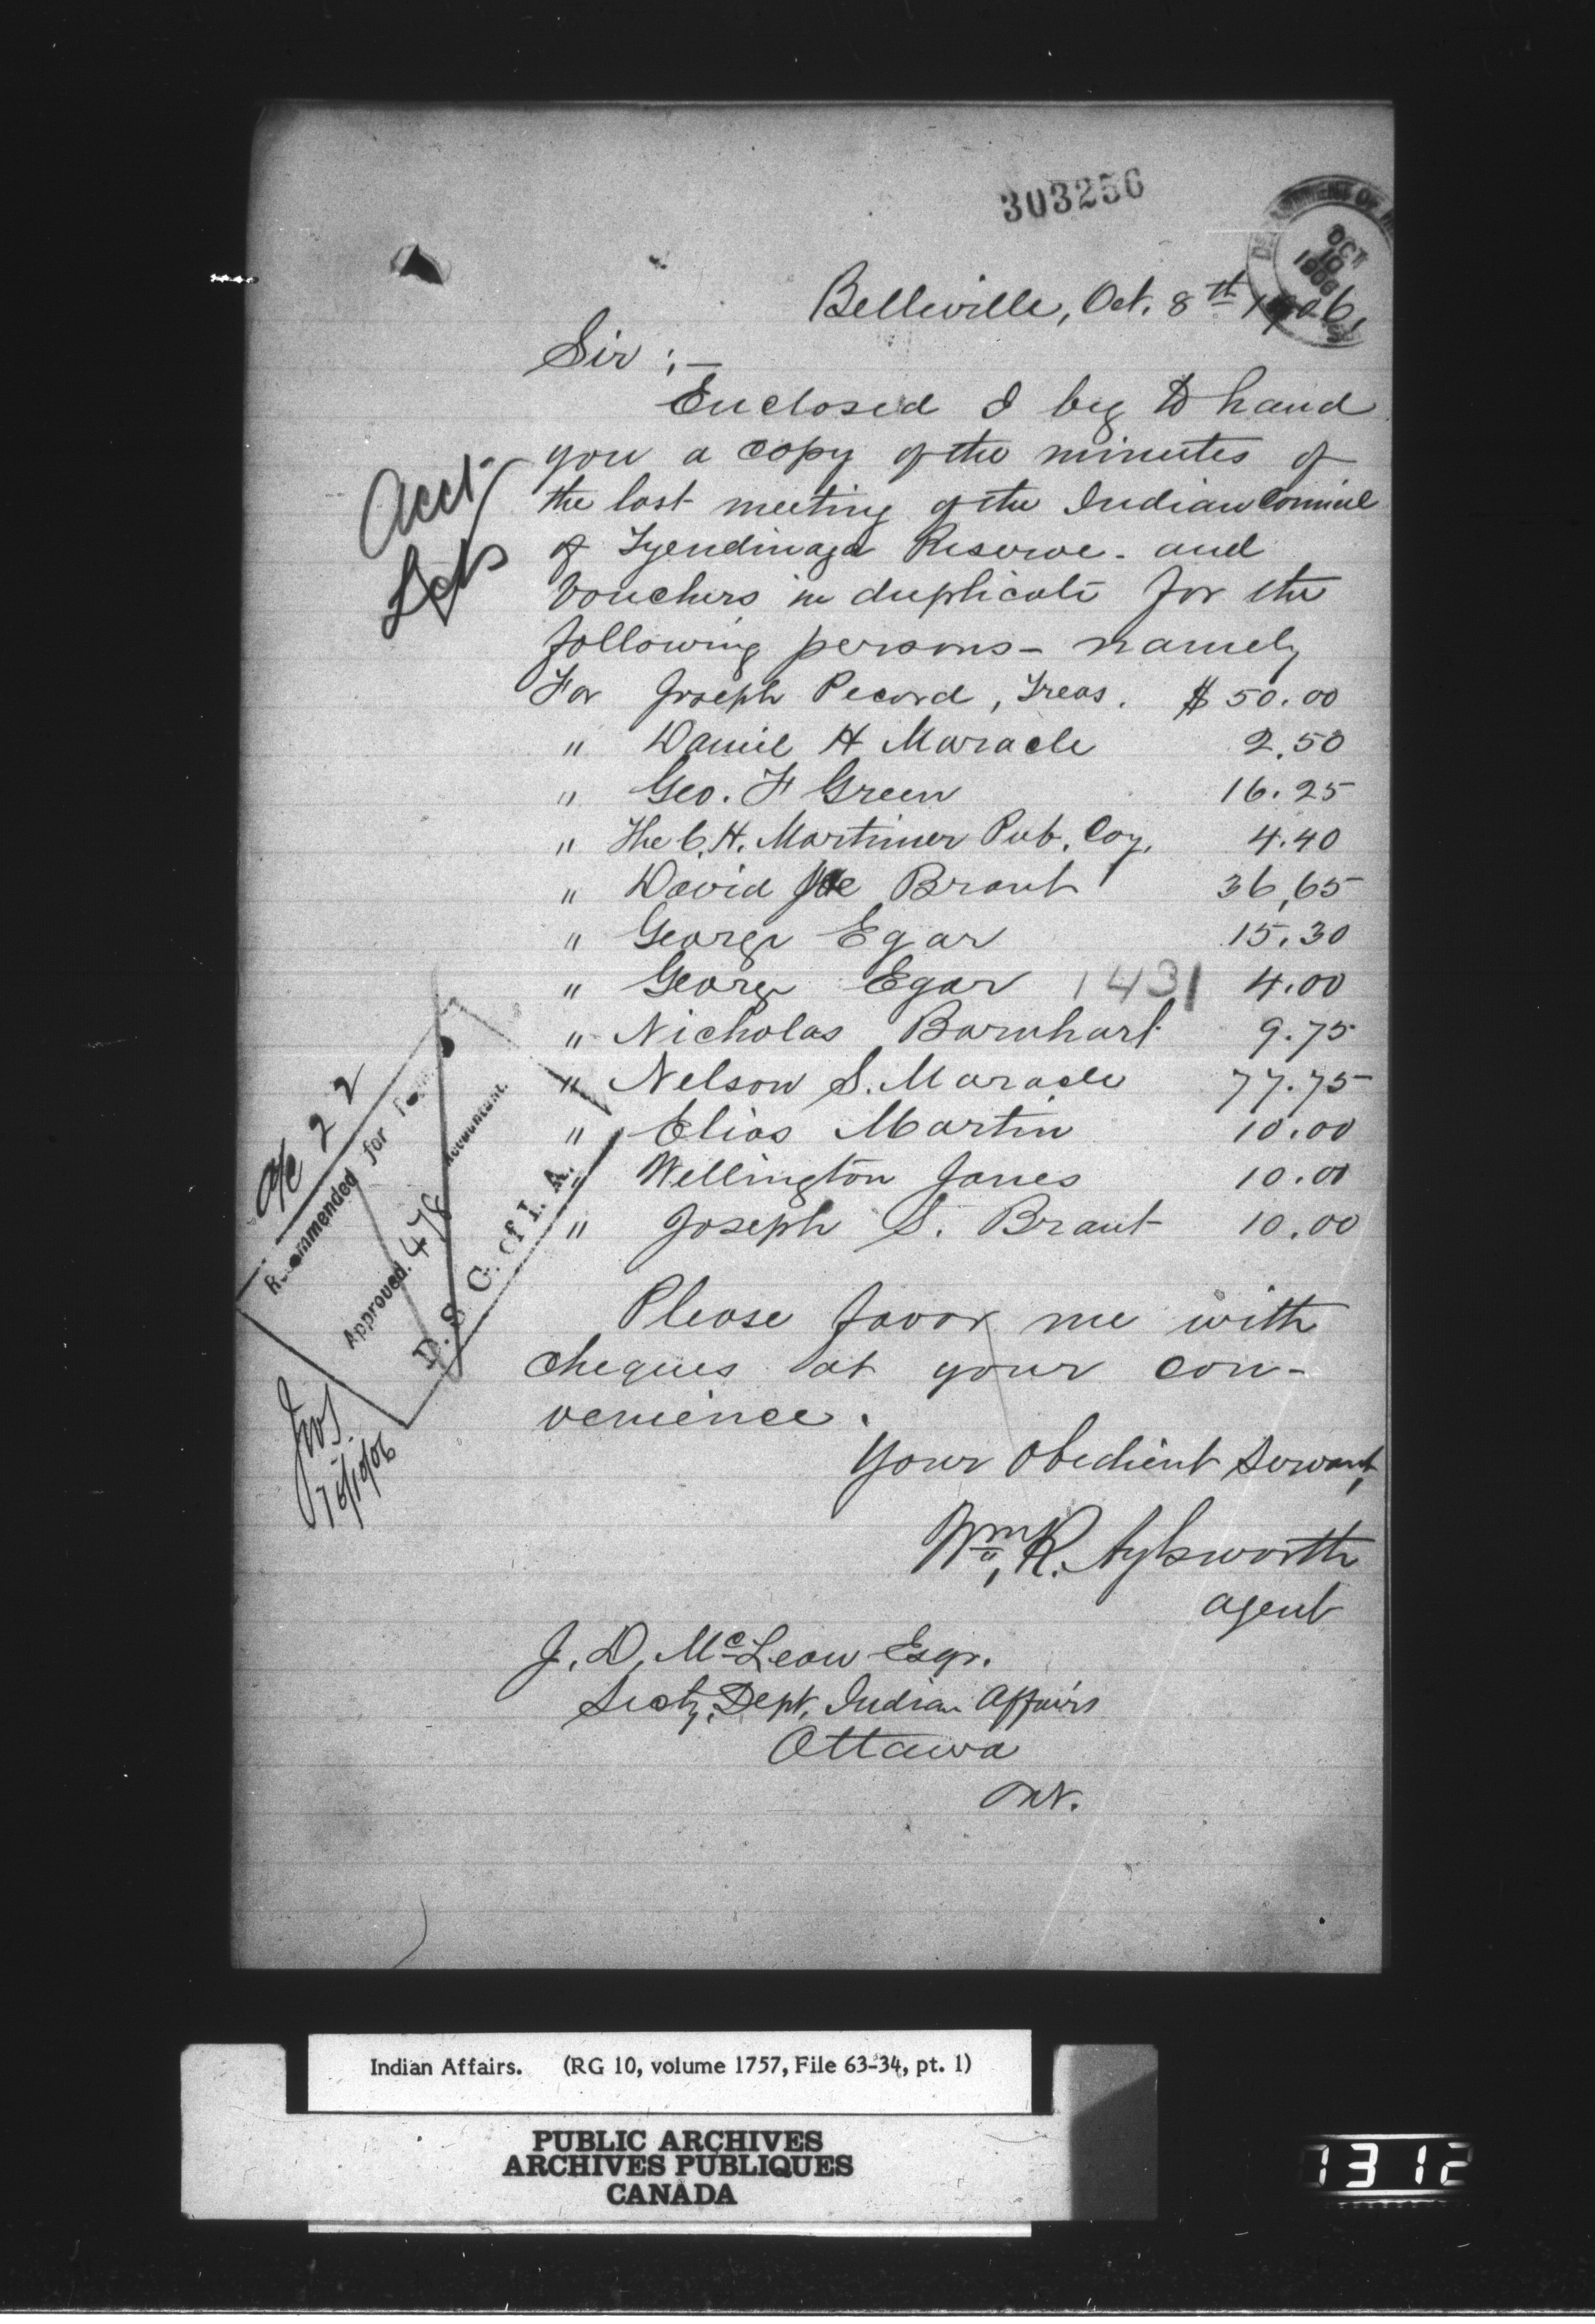 303256
DEPARTMENT OF
OCT 10 1906
Belleville, Oct. 8th 1906,
Sir :—
Enclosed I beg to hand
you a copy of the minutes of
the last meeting of the Indian Council
of Tyendinaga Reserve - and
Vouchers in duplicate for the
following persons - namely
Acct.
For Joseph Pecord, Treas. $ 50.00
" Daniel H Maracle 2.50
" Geo. F Green 16.25
" The C. H. Mortimer Pub. Coy. 4.40
" David Brant 36.65
" George Egar 15.30
" George Egar 1431 4.00
" Nicholas Barnhart 9.75
" Nelson S. Maracle 77.75
" Elias Martin 10.00
" Wellington Jones 10.00
" Joseph S. Brant 10.00
a/c 22
Recommended for
Accountant.
Approved. 478
D. S. G. of I. A.
Please favor me with
cheques at your con-
venience.
Your Obedient Servant,
Wm. R. Aylsworth
agent
J. D. McLean Esqr.
Secty. Dept. Indian Affairs
Ottawa
Ont.
Indian Affairs. (RG 10, volume 1757, File 63-34, pt. 1)
PUBLIC ARCHIVES
ARCHIVES PUBLIQUES
CANADA
1312